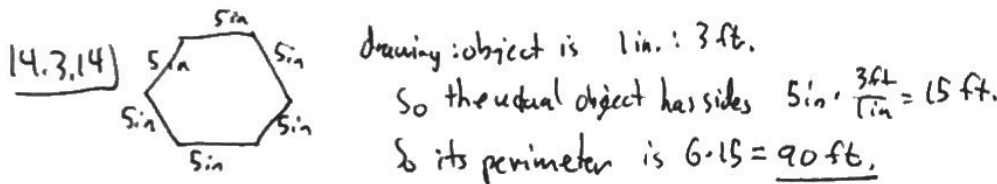 14.3.14)
5in
5in
5in
5in
5in
5in
drawing : object is 1in. : 3 ft.
So the actual object has sides 5in · 3ft/1in = 15 ft.
So its perimeter is 6·15 = 90 ft.